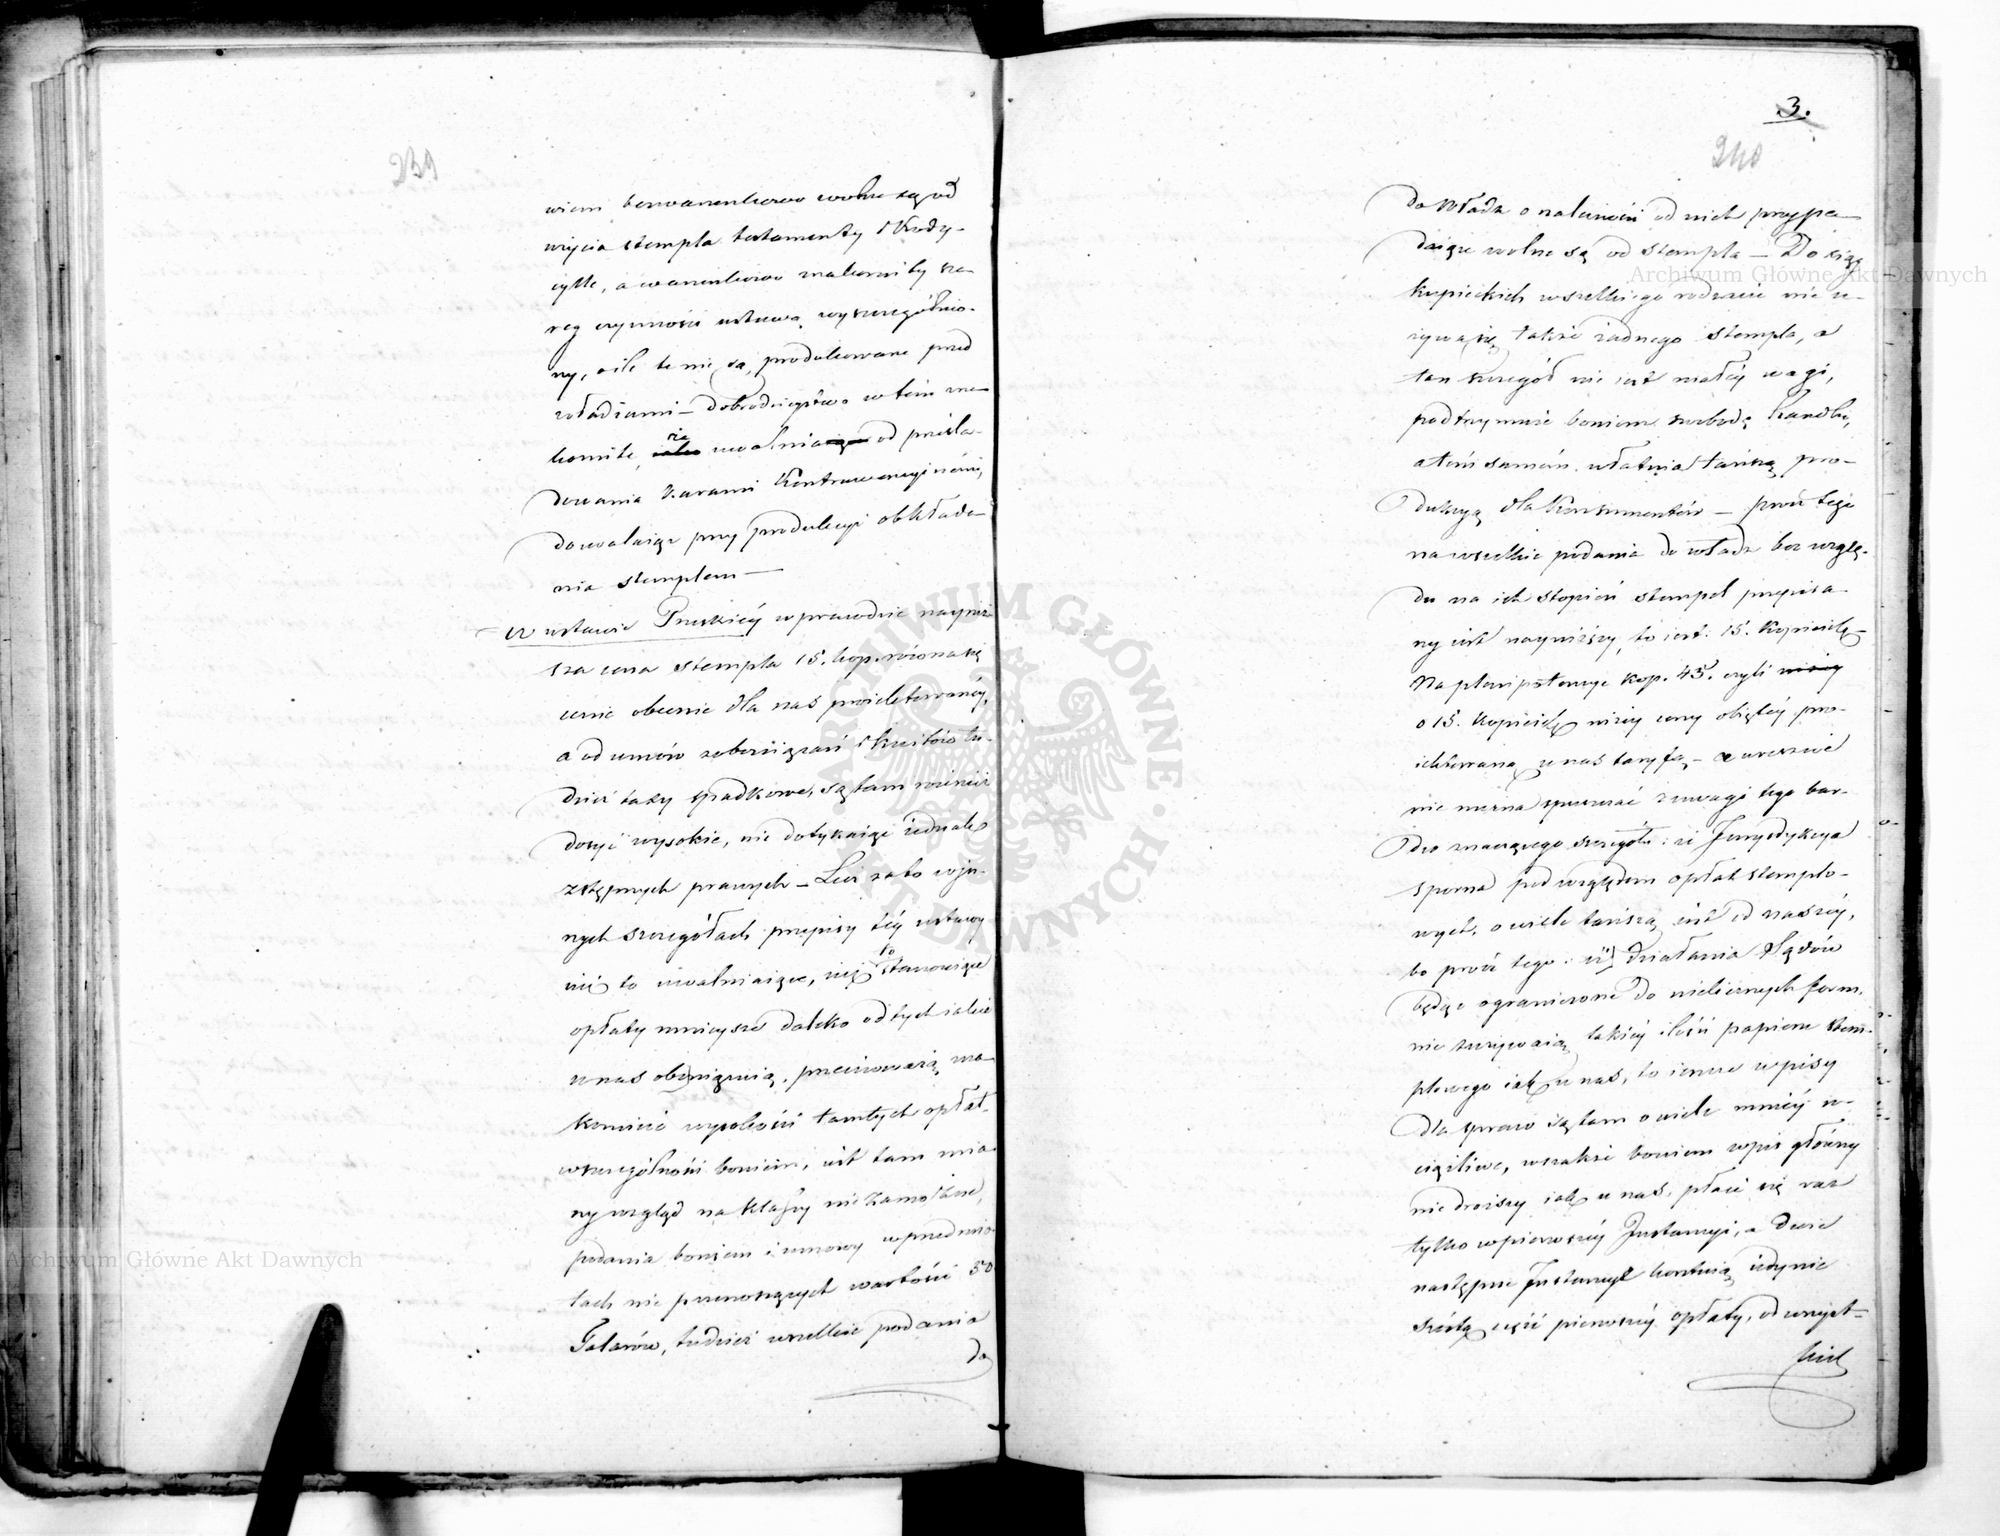 239
wiem bezwarunkowo wolne są od
użycia stempla testamenty i Kody-
cylle, a warunkowo znakomity sze-
reg czynności ustawą wyszczególnio-
ny, o ile te nie są produkowane przed
władzami – dobrodziejstwo w tém zna-
komite, że uwalnia od prześla-
dowania karami Kontrawencyjnemi,
dozwalając przy produkcyi obkłada-
nia stemplem —
W ustawie Pruskiéj wprawdzie najniż-
sza cena stempla 15. kop. równa się
cenie obecnie dla nas projektowanéj,
a od umów zobowiązań i kwitów tu-
dzież taxy spadkowe, są tam również
dosyć wysokie, nie dotykając jednak
zstępnych prawych – Lecz za to w in-
nych szczegółach przepisy téj ustawy
już to uwalniające, już to stanowiące
opłaty mniejsze daleko od tych jakie
u nas obowiązują, przeciwważą zna-
komicie wysokość tamtych opłat.
w szczególności bowiem, jest tam mia-
ny wzgląd na klassy niezamożne,
podania bowiem i umowy w przedmio-
tach nie przenoszących wartości 50
Talarów, tudzież wszelkie podania
do
3.
240
do Władz o należności od nich przypa-
dające wolne są od stempla – Do ksiąg
kupieckich wszelkiego rodzaju nie u-
żywa się także żadnego stempla, a
ten szczegół nie jest małéj wagi,
podtrzymuje bowiem swobodę handlu,
a tém samém ułatwia tańszą pro-
dukcyą dla Konsumentów – prócz tego
na wszelkie podania do władz bez wzglę-
du na ich stopień stempel przepisa-
ny jest najniższy, to jest: 15. Kopiejek
Na plenipotencye kop. 45. czyli niżéj
o 15. Kopiejek niżéj ceny objętéj pro-
jektowaną u nas taryfą – a wreszcie
nie można spuszczać z uwagi tego bar-
dzo znaczącego szczegółu: iż Jurysdykcya
sporna pod względem opłat stemplo-
wych, o wiele tańszą jest od naszéj,
bo prócz tego: iż działania Sądów
będąc ograniczone do nielicznych form,
nie zużywają takiéj ilości papieru stem-
plowego jak u nas, to jeszcze wpisy
dla spraw są tam o wiele mniéj u-
ciążliwe, wszakże bowiem wpis główny
nie droższy jak u nas, płaci się raz
tylko w pierwszéj Instancyi, a dwie
następne Instancye kosztują jedynie
szóstą część pierwszéj opłaty, od wszyst-
kich
Archiwum Główne Akt Dawnych
Archiwum Główne Akt Dawnych
ARCHIWUM GŁÓWNE · AKT DAWNYCH ·